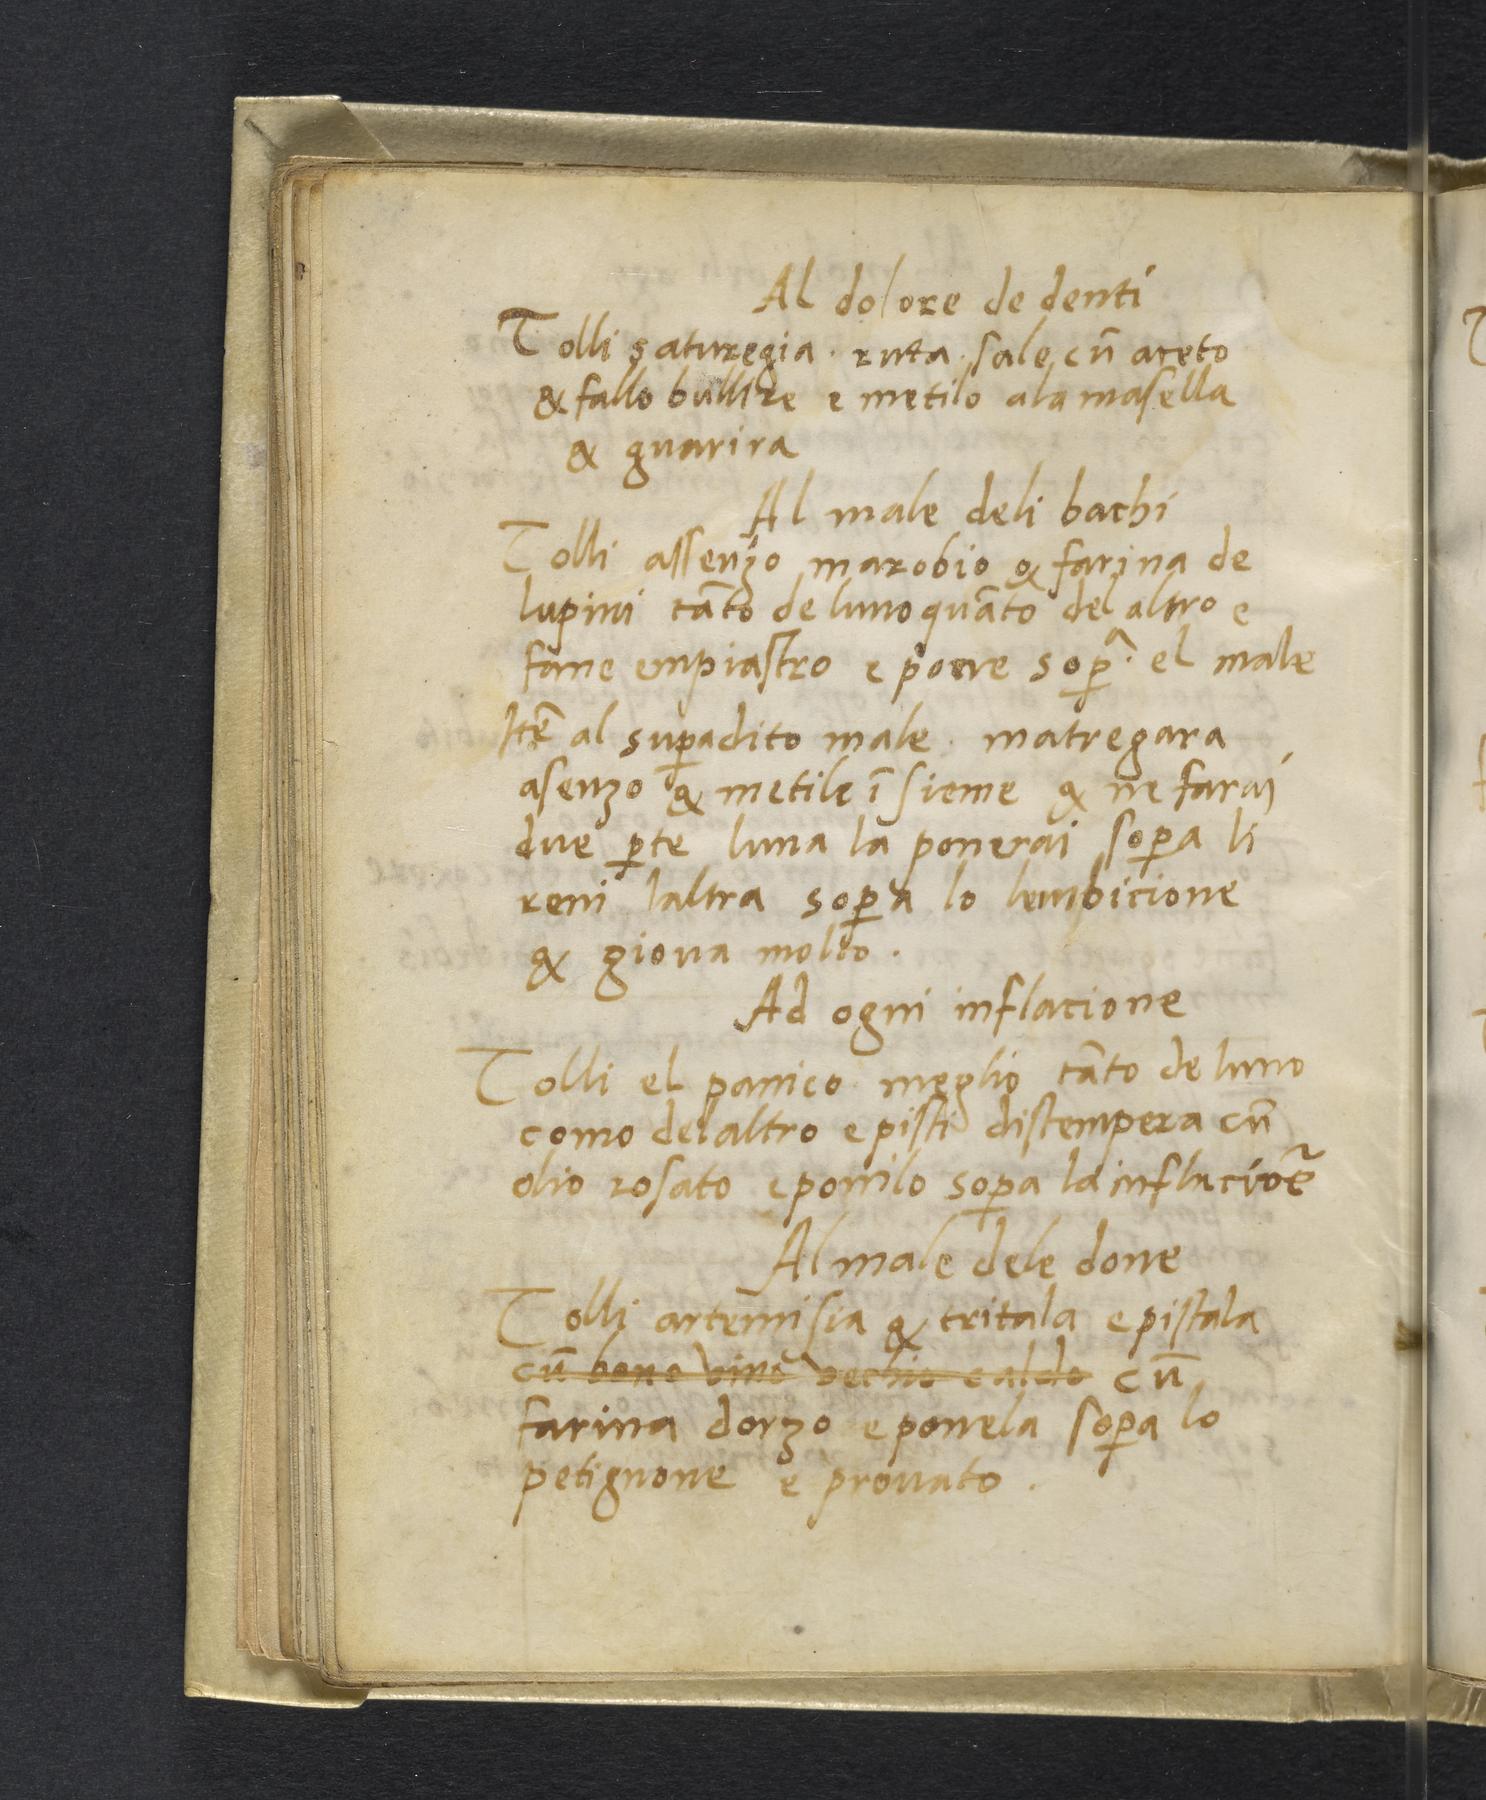 Al dolore de denti
Tolli saturegia · ruta · sale cũ aceto
& fallo bullire e metilo ala masella
& guarira
Al male deli bachi
Tolli assenzo marobio & farina de
lupini tãto de luno quãto del altro e
fane enpiastro e pone sop̱ᵃ · el male
Itẽ al sup̱adito male · matregara
asenzo & metile ĩsieme & ne farai
due p̱te luna la ponerai sop̱a li
reni laltra sop̱a lo lenbicione
& gioua molto .
Ad ogni inflacione
Tolli el panico meglio tãto de luno
como delaltro e pisti distempera cũ
olio rosato e ponilo sop̱a la inflaciõe
Al male dele done
Tolli artemisia & tritala e pistala
cũ bono vino vechio caldo cũ
farina dorzo e ponela sop̱a lo
petignone e prouato .